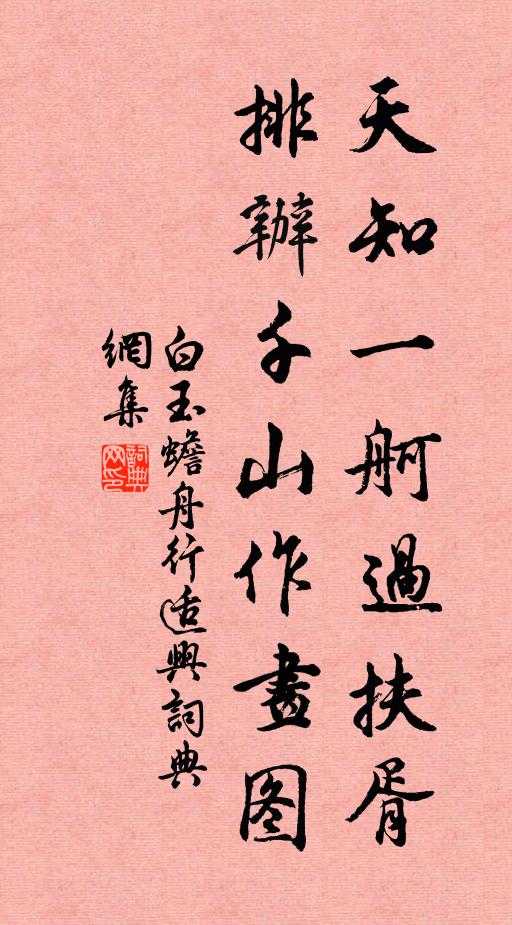 天知一舸過扶胥
排辦千山作畫图
白玉蟾舟行适興詞典
網集
詞典网印